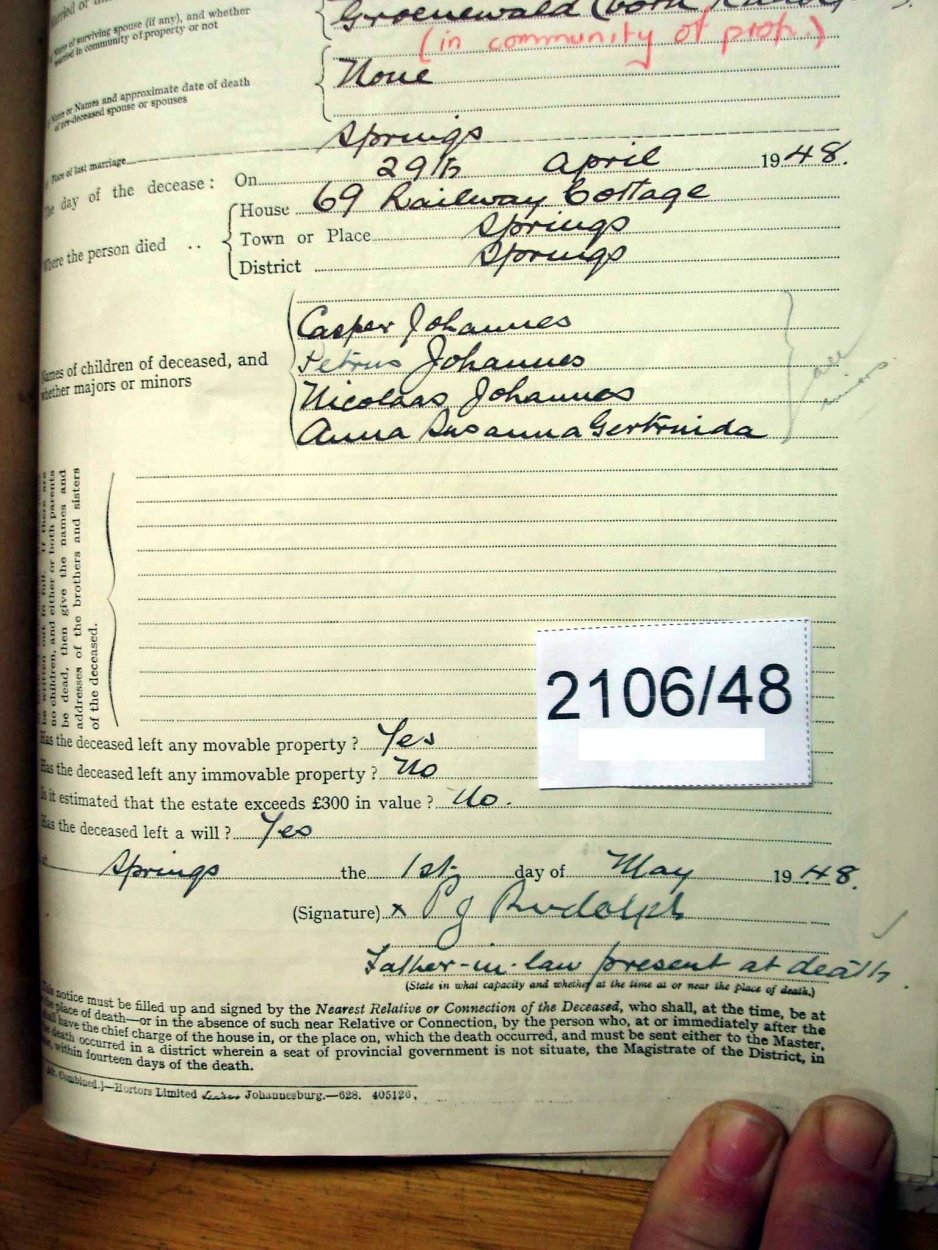 Groenewald (born
(in community of prop.)
Name of surviving spouse (if any), and whether
married in community of property or not
None
Name or Names and approximate date of death
of pre-deceased spouse or spouses
Place of last marriage Springs
The day of the decease: On 29th April 1948.
House 69 Railway Cottage
Where the person died .. Town or Place Springs
District Springs
Casper Johannes
Names of children of deceased, and Petrus Johannes
whether majors or minors Nicolaas Johannes
Anna Susanna Gertruida
all
no children, and either or both parents
be dead, then give the names and
addresses of the brothers and sisters
of the deceased.
2106/48
Has the deceased left any movable property ? Yes
Has the deceased left any immovable property ? No
Is it estimated that the estate exceeds £300 in value ? No.
Has the deceased left a will ? Yes
at Springs the 1st day of May 1948.
(Signature) x P J Rudolph
Father-in-law present at death.
(State in what capacity and whether at the time at or near the place of death.)
This notice must be filled up and signed by the Nearest Relative or Connection of the Deceased, who shall, at the time, be at
the place of death—or in the absence of such near Relative or Connection, by the person who, at or immediately after the
shall have the chief charge of the house in, or the place on, which the death occurred, and must be sent either to the Master,
the death occurred in a district wherein a seat of provincial government is not situate, the Magistrate of the District, in
within fourteen days of the death.
Combined.]—Hortors Limited Johannesburg.—628. 405126.